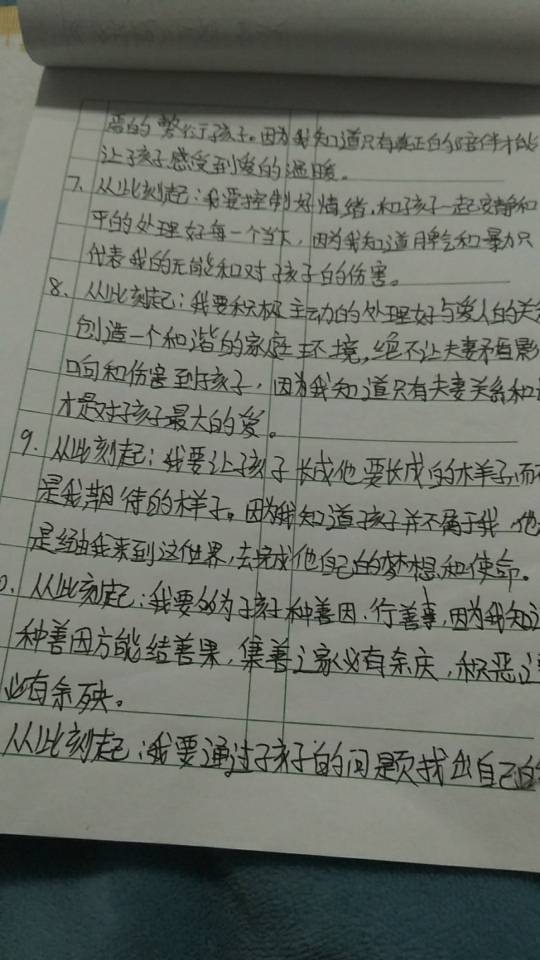 的繁忙于孩子。因为我知道只有真正的陪伴才能
让孩子感受到爱的温暖。
7、从此刻起：我要控制好情绪，和孩子一起安静和
平的处理好每一个当下，因为我知道月卑气和暴力只
代表我的无能和对孩子的伤害。
8、从此刻起：我要积极主动的处理好与爱人的关
创造一个和谐的家庭环境，绝不让夫妻矛盾影
响和伤害到孩子，因为我知道只有夫妻关系和
才是对孩子最大的爱。
9、从此刻起：我要让孩子长成他要长成的样子，而不
是我期待的样子。因为我知道孩子并不属于我，他
是经由我来到这世界，去完成他自己的梦想和使命。
0、从此刻起：我要的为孩子种善因、行善事，因为我知
种善因方能结善果，集善之家必有余庆，积恶之
必有余殃。
从此刻起：我要通过孩子的问题找出自己的